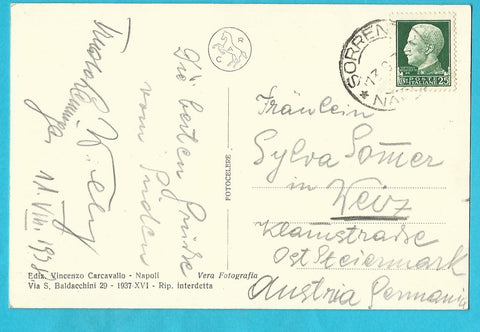 Die besten Grüße
vom Süden
11. VIII. 1938
FOTOCELERE
Ediz. Vincenzo Carcavallo - Napoli
Vera Fotografia
Via S. Baldacchini 29 - 1937-XVI - Rip. interdetta
SORREN
NA
POSTE
ITALIANE
Fräulein
Sylva Somer
in Weiz
Klamstraße
Ost Steiermark
Austria Germania